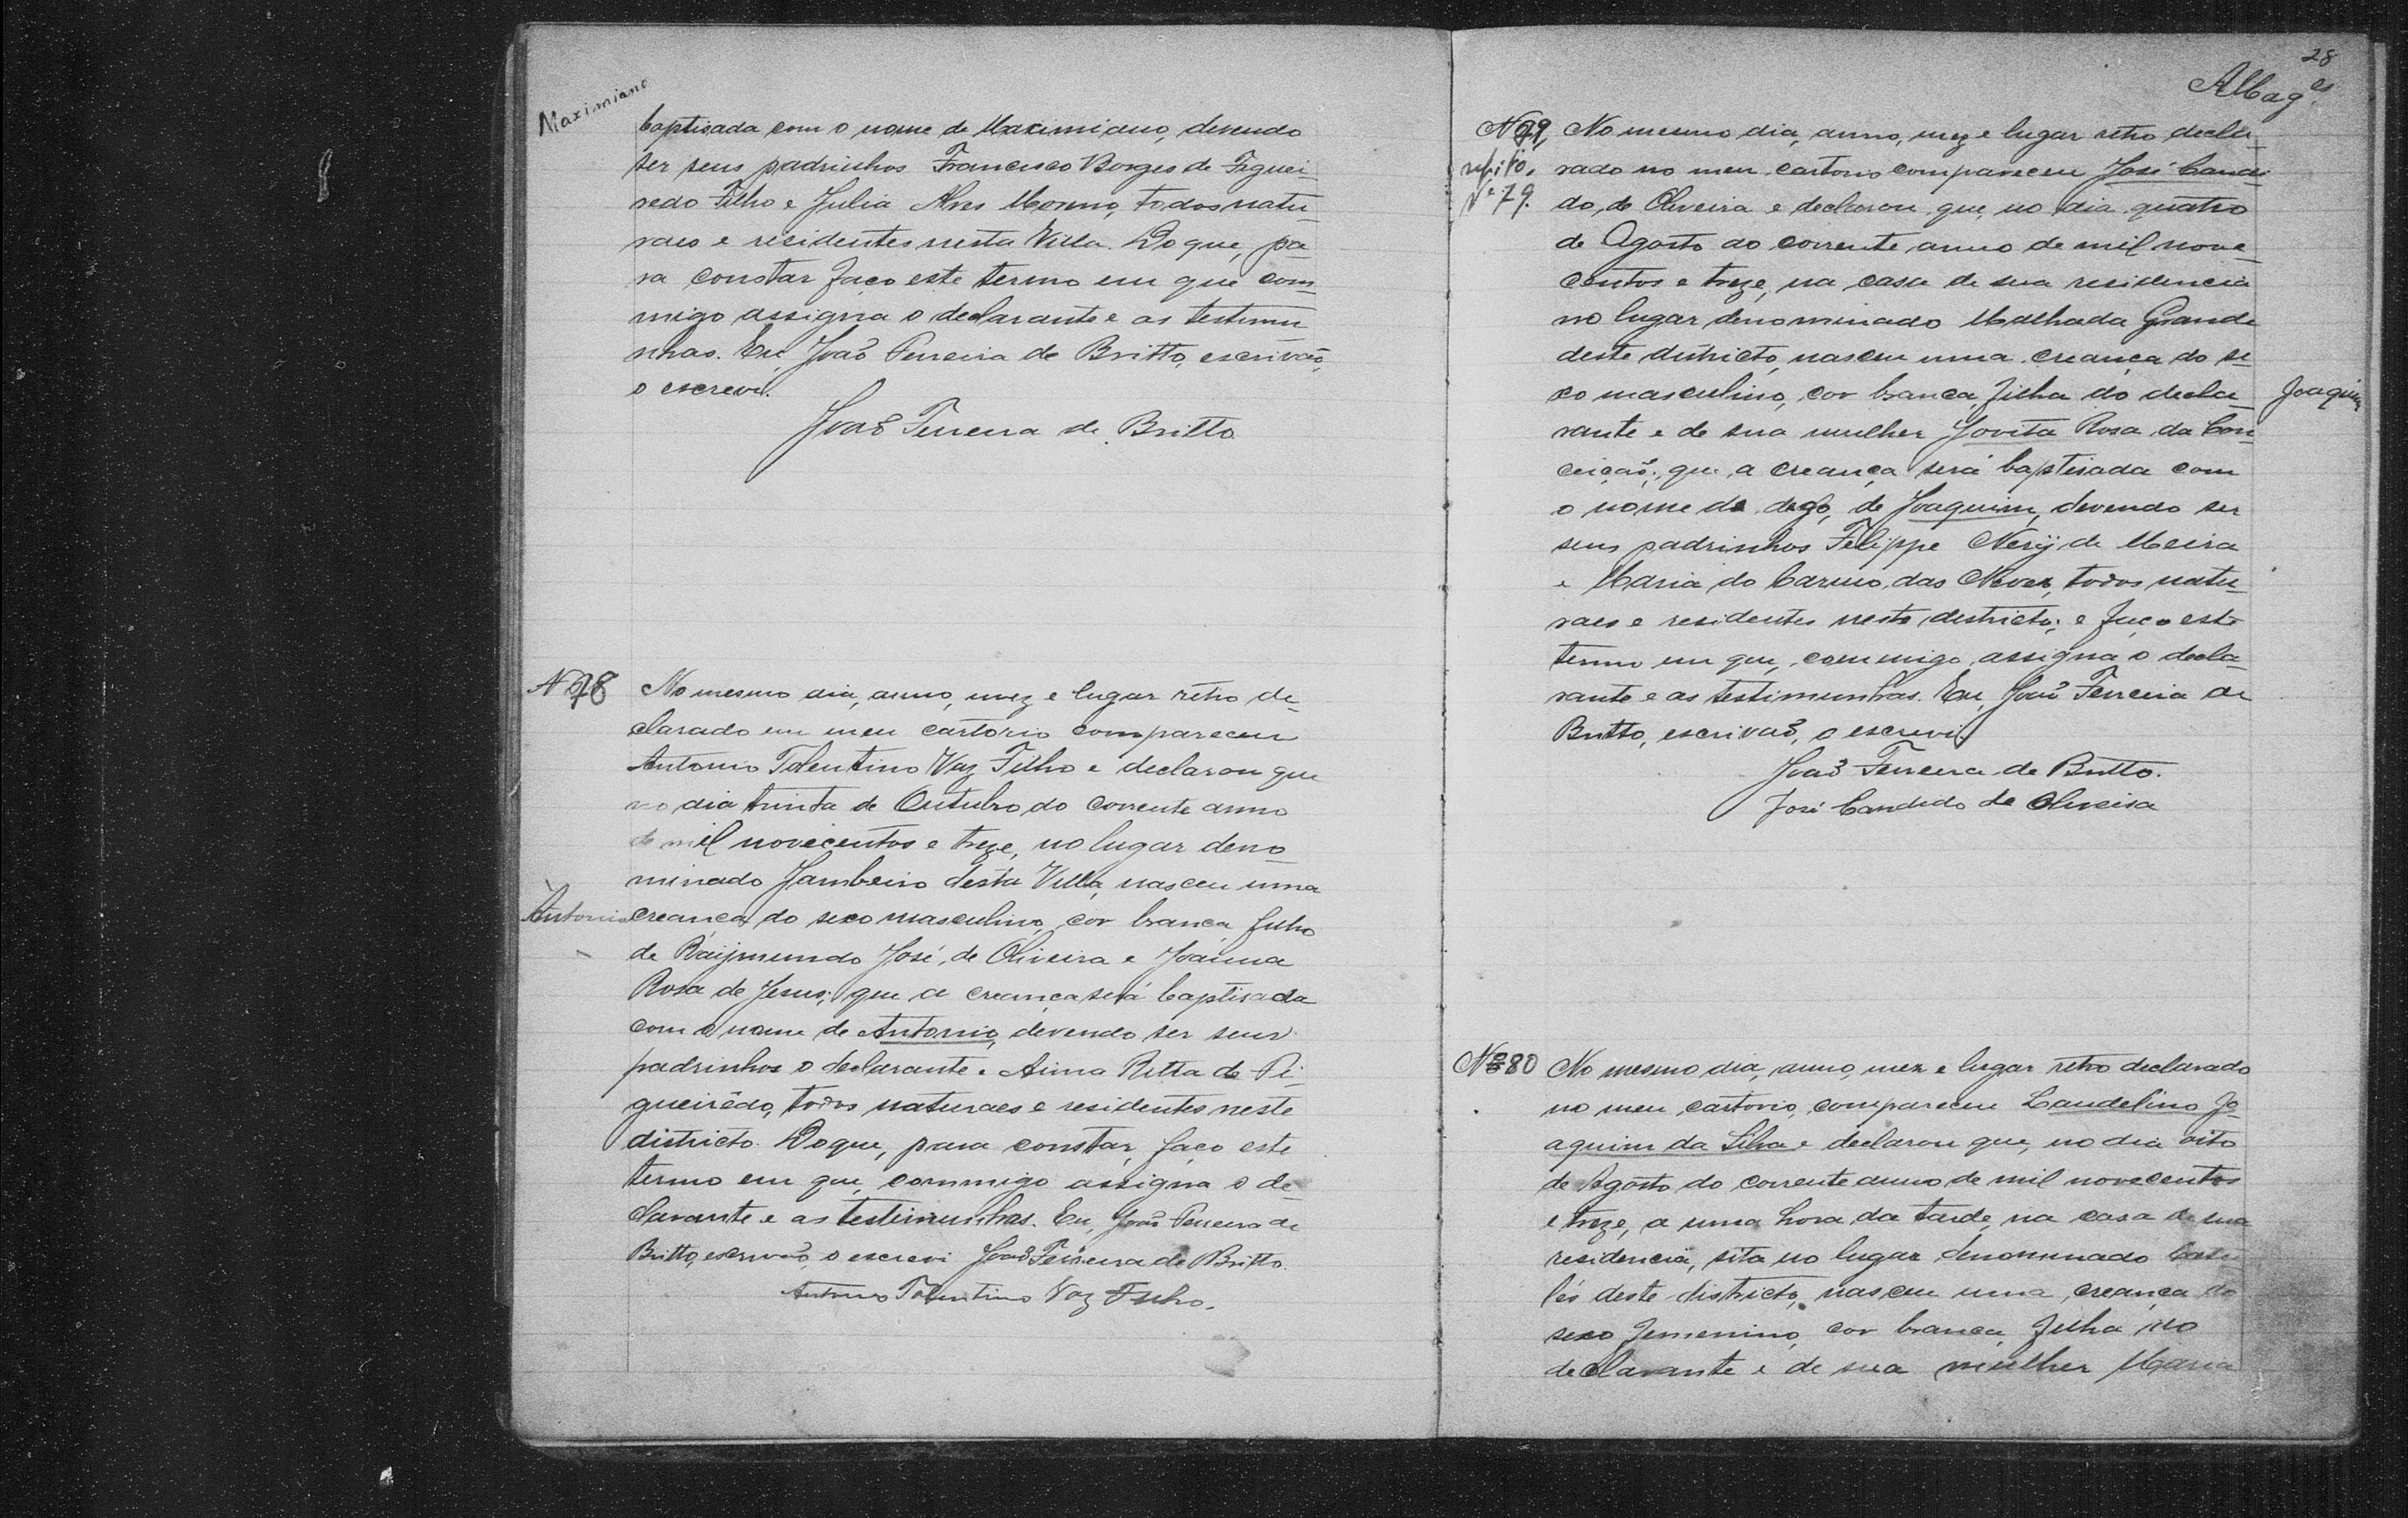 Maximiano
baptisada com o nome de Maximiano, devendo
ser seus padrinhos Francisco Borges de Figuei-
redo Filho e Julia Alves Moreno, todos natu-
raes e residentes nesta Villa. Do que, pa-
ra constar faço este termo em que com-
migo assigna o declarante e as testemu-
nhas. Eu, João Ferreira de Britto, escrivão,
o escrevi.
João Ferreira de Britto
Nº 78
No mesmo dia, anno, mez e lugar retro de-
clarado em meu cartorio compareceu
Antonio Tolentino Vaz Filho e declarou que
no dia trinta de Outubro do corrente anno
de mil novecentos e treze, no lugar deno-
minado Jambeiro desta Villa, nasceu uma
Antonio
creança do sexo masculino, cor branca, filho
de Raijmundo José de Oliveira e Joanna
Rosa de Jesus; que a creança será baptisada
com o nome de Antonio, devendo ser seus
padrinhos o declarante e Anna Ritta de Fi-
gueirêdo, todos naturaes e residentes neste
districto. Do que, para constar, faço este
termo em que, commigo assigna o de-
clarante e as testimunhas. Eu, João Ferreira de
Britto, escrivão, o escrevi João Ferreira de Britto.
Antonio Tolentino Vaz Filho.
28
Nº 79,
Nº 79.
No mesmo dia, anno, mez e lugar retro decla-
rado no meu cartorio compareceu José Candi-
do de Oliveira e declarou que, no dia quatro
de Agosto do corrente anno de mil nove-
centos e treze, na casa de sua residencia
no lugar denominado Malhada Grande
deste districto, nasceu uma creança do se-
xo masculino, cor branca, filha do decla-
Joaquim
rante e de sua mulher Jovita Rosa da Con-
ceição; que a creança será baptisada com
o nome de digo, de Joaquim, devendo ser
seus padrinhos Felippe Nerij de Meira
e Maria do Carmo das Neves, todos natu-
raes e residentes neste districto; e faço este
termo em que, commigo assigna o decla-
rante e as testimunhas. Eu, João Ferreira de
Britto, escrivão, o escrevi
João Ferreira de Britto.
José Candido de Oliveira
Nº 80
No mesmo dia, anno, mez e lugar retro declarado
no meu cartorio, compareceu Laudelino Jo-
aquim da Silva e declarou que, no dia oito
de Agosto do corrente anno de mil novecentos
e treze, a uma hora da tarde, na casa de sua
residencia, sita no lugar denominado
deste districto, nasceu uma creança do
sexo femenino, cor branca, filha do
declarante e de sua mulher Maria